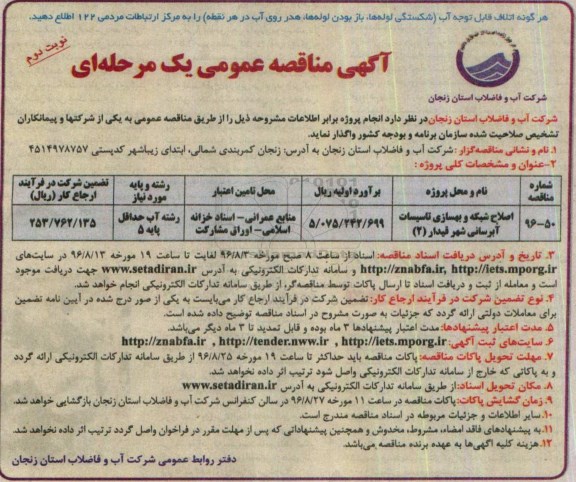 هر گونه اتلاف قابل توجه آب (شکستگی لوله‌ها، باز بودن لوله‌ها، هدر روی آب در هر نقطه) را به مرکز ارتباطات مردمی ۱۲۲ اطلاع دهید.
نوبت دوم
آگهی مناقصه عمومی یک مرحله‌ای
شرکت آب و فاضلاب استان زنجان
شرکت آب و فاضلاب استان زنجان در نظر دارد انجام پروژه برابر اطلاعات مشروحه ذیل را از طریق مناقصه عمومی به یکی از شرکتها و پیمانکاران
تشخیص صلاحیت شده سازمان برنامه و بودجه کشور واگذار نماید.
۱. نام و نشانی مناقصه‌گزار: شرکت آب و فاضلاب استان زنجان به آدرس: زنجان کمربندی شمالی، ابتدای زیباشهر کدپستی ۴۵۱۴۹۷۸۷۵۷
۲-عنوان و مشخصات کلی پروژه :
شماره مناقصه | نام و محل پروژه | برآورد اولیه ریال | محل تامین اعتبار | رشته و پایه مورد نیاز | تضمین شرکت در فرآیند ارجاع کار (ریال)
۹۶-۵۰ | اصلاح شبکه و بهسازی تاسیسات آبرسانی شهر قیدار (۲) | ۵/۰۷۵/۲۴۲/۶۹۹ | منابع عمرانی- اسناد خزانه اسلامی- اوراق مشارکت | رشته آب حداقل پایه ۵ | ۲۵۳/۷۶۲/۱۳۵
۳. تاریخ و آدرس دریافت اسناد مناقصه: اسناد از ساعت ۸ صبح مورخه ۹۶/۸/۳ لغایت تا ساعت ۱۹ مورخه ۹۶/۸/۱۳ در سایت‌های
http://znabfa.ir, http://iets.mporg.ir و سامانه تدارکات الکترونیکی به آدرس www.setadiran.ir جهت دریافت موجود
است و معامله از ثبت و دریافت اسناد تا ارسال پاکات توسط مناقصه‌گر، از طریق سامانه تدارکات الکترونیکی انجام خواهد شد.
۴. نوع تضمین شرکت در فرآیند ارجاع کار: تضمین شرکت در فرآیند ارجاع کار می‌بایست به یکی از صور درج شده در آیین نامه تضمین
برای معاملات دولتی ارائه گردد که جزئیات به صورت مشروح در اسناد مناقصه توضیح داده شده است.
۵. مدت اعتبار پیشنهادها: مدت اعتبار پیشنهادها ۳ ماه بوده و قابل تمدید تا ۳ ماه دیگر می‌باشد.
۶ . سایت‌های ثبت آگهی: http://znabfa.ir , http://tender.nww.ir , http://iets.mporg.ir
۷. مهلت تحویل پاکات مناقصه: پاکات مناقصه باید حداکثر تا ساعت ۱۹ مورخه ۹۶/۸/۲۵ از طریق سامانه تدارکات الکترونیکی ارائه گردد
و به پاکاتی که خارج از سامانه تدارکات الکترونیکی واصل شود ترتیب اثر داده نخواهد شد.
۸. مکان تحویل اسناد: از طریق سامانه تدارکات الکترونیکی به آدرس www.setadiran.ir
۹. زمان گشایش پاکات: پاکات مناقصه در ساعت ۱۱ مورخه ۹۶/۸/۲۷ در سالن کنفرانس شرکت آب و فاضلاب استان زنجان بازگشایی خواهد شد.
۱۰. سایر اطلاعات و جزئیات مربوطه در اسناد مناقصه مندرج است.
۱۱. به پیشنهادهای فاقد امضاء، مشروط، مخدوش و همچنین پیشنهاداتی که پس از مهلت مقرر در فراخوان واصل گردد ترتیب اثر داده نخواهد شد.
۱۲. هزینه کلیه آگهی‌ها به عهده برنده مناقصه می‌باشد.
دفتر روابط عمومی شرکت آب و فاضلاب استان زنجان